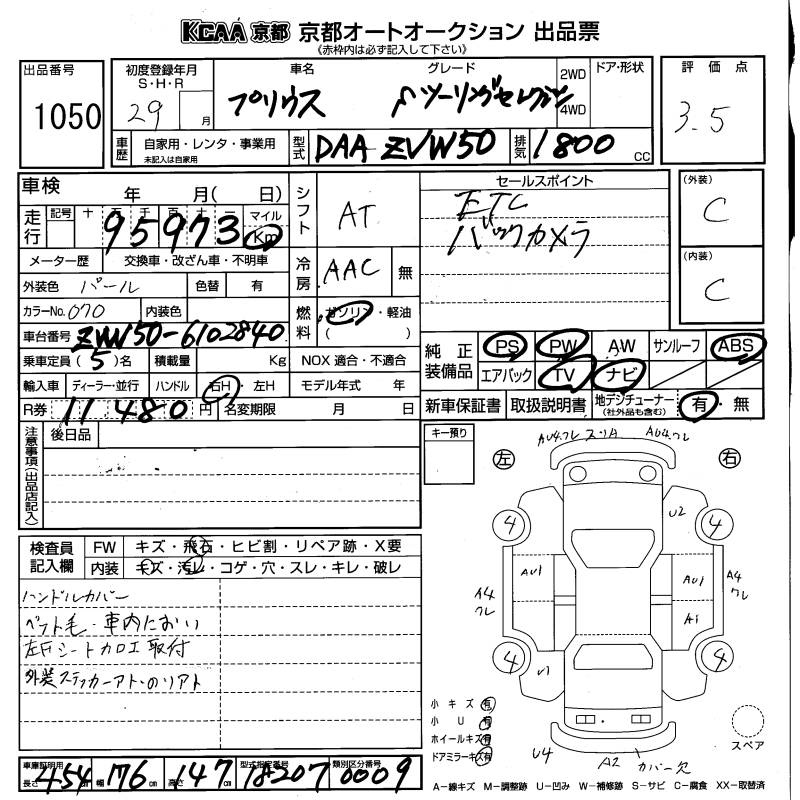 KCAA 京都 京都オートオークション 出品票
《赤枠内は必ず記入して下さい》
出品番号
1050
初度登録年月
S・H・R
29 月
車名
プリウス
グレード
ツーリングセレクション
2WD
4WD
ドア・形状
評価点
3.5
車歴
自家用・レンタ・事業用
未記入は自家用
型式
DAA ZVW50
排気
1800 CC
車検 年 月( 日)
走行
記号 十 万 千 百 十
95973
マイル
Km
メーター歴 交換車・改ざん車・不明車
外装色 パール 色替 有
カラーNo. 070 内装色
車台番号 ZVW50-6102840
乗車定員(5)名 積載量 Kg NOX 適合・不適合
輸入車 ディーラー・並行 ハンドル 右H・左H モデル年式 年
R券 11480円 名変期限 月 日
シフト
AT
冷房
AAC 無
燃料
ガソリン・軽油
( )
セールスポイント
ETC
バックカメラ
(外装)
C
(内装)
C
純正装備品
PS PW AW サンルーフ ABS
エアバック TV ナビ
新車保証書 取扱説明書 地デジチューナー
(社外品も含む)
有・無
注意事項(出品店記入)
後日品
検査員記入欄
FW キズ・飛石・ヒビ割・リペア跡・X要
内装 キズ・汚レ・コゲ・穴・スレ・キレ・破レ
ハンドルカバー
ペット毛・車内におい
左Fシートカロエ取付
外装ステッカーアト・のリアト
車庫証明用
長さ 454 幅 176cm 高さ 147cm
型式指定番号 18207
類別区分番号 0009
キー預り
AU4.ワレ スリ傷 AU4.ワレ
左
右
4
4
U2
AU1
AU1
A4
ワレ
A4
ワレ
A1
4
4
U1
小キズ 有
小U 有
ホイールキズ 有
ドアミラーキズ 有
U4
A2
カバー欠
スペア
A−線キズ M−調整跡 U−凹み W−補修跡 S−サビ C−腐食 XX−取替済